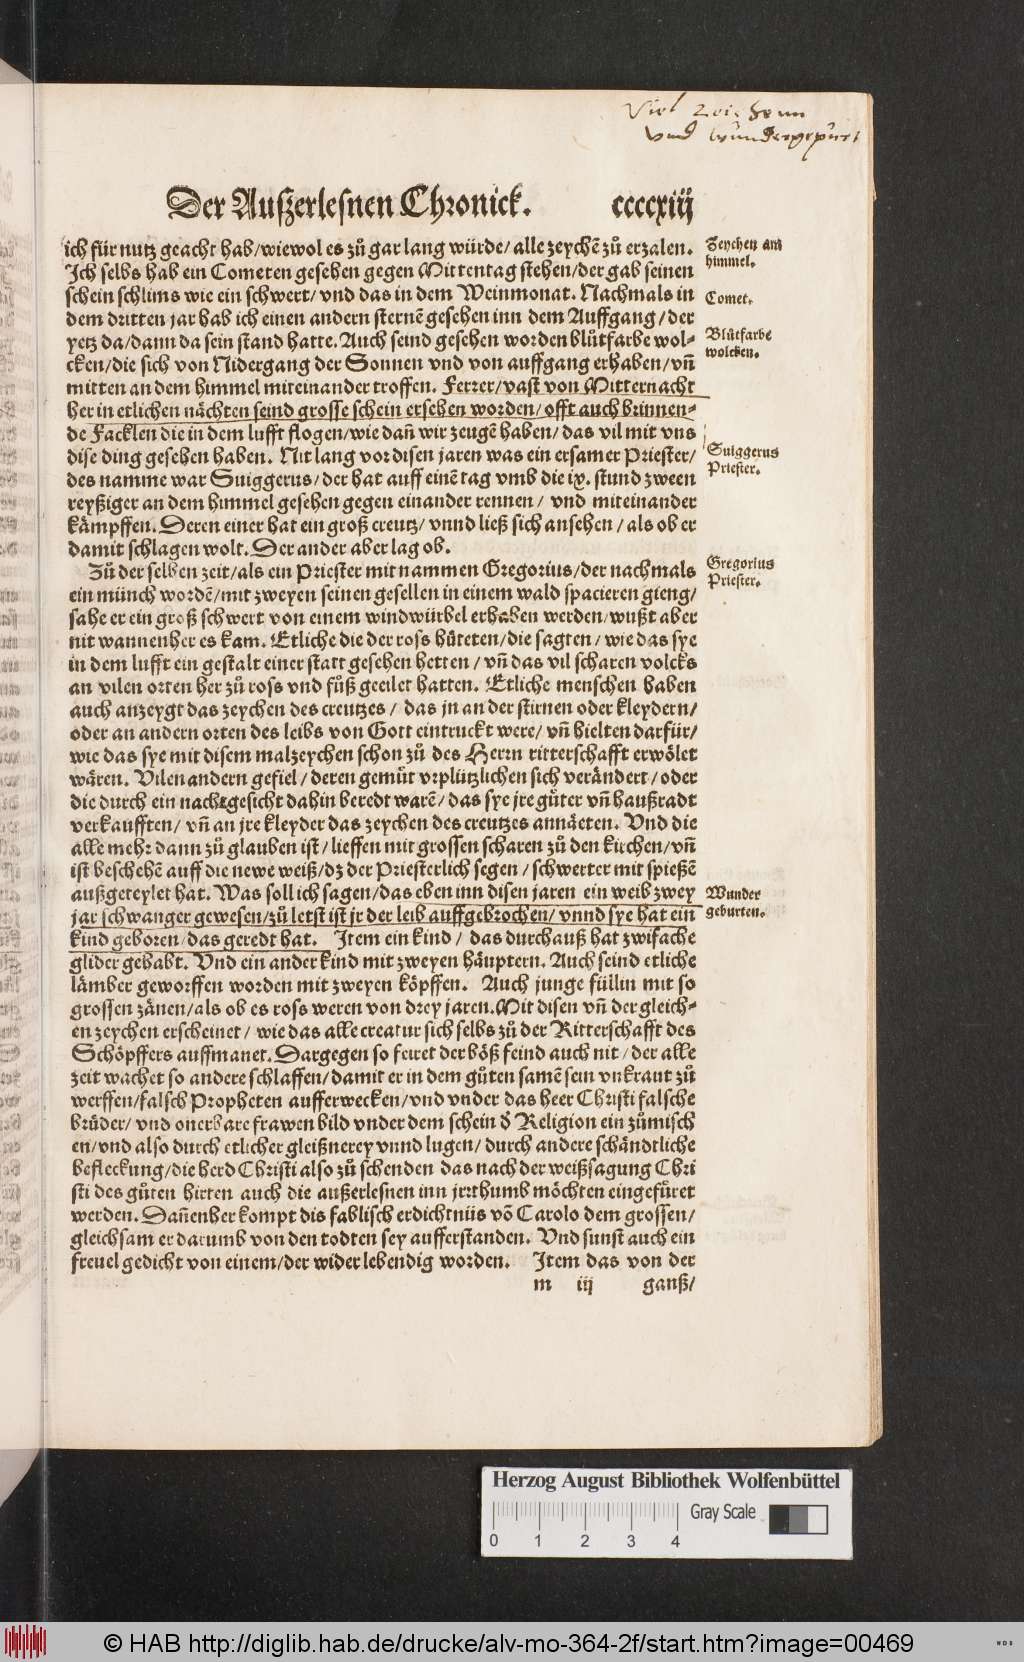 Viel Zeichenn
vnd wundergepurt
Der Auſzerleſnen Chronick. ccccxiij
ich für nutz geacht hab/wiewol es zů gar lang würde/ alle zeychē zů erzalen.
Zeychen am
himmel.
Ich ſelbs hab ein Cometen geſehen gegen Mittentag ſtehen/der gab ſeinen
ſchein ſchlims wie ein ſchwert/ vnd das in dem Weinmonat. Nachmals in
Comet.
dem dritten jar hab ich einen andern ſternē geſehen inn dem Auffgang/der
yetz da/dann da ſein ſtand hatte. Auch ſeind geſehen worden blůtfarbe wol-
Blůtfarbe
wolcken.
cken/die ſich von Nidergang der Sonnen vnd von auffgang erhaben/vñ
mitten an dem himmel miteinander troffen. Ferrer/vaſt von Mitternacht
her in etlichen nächten ſeind groſſe ſchein erſehen worden/ offt auch brinnen-
de Facklen die in dem lufft flogen/wie dañ wir zeugē haben/ das vil mit vns
diſe ding geſehen haben. Nit lang vor diſen jaren was ein erſamer Prieſter/
Suiggerus
Prieſter.
des namme war Suiggerus/der hat auff einē tag vmb die ix. ſtund zween
reyßiger an dem himmel geſehen gegen einander rennen/ vnd miteinander
kämpffen. Deren einer hat ein groß creutz/ vnnd ließ ſich anſehen/als ob er
damit ſchlagen wolt. Der ander aber lag ob.
Zů der ſelben zeit/als ein Prieſter mit nammen Gregorius/der nachmals
Gregorius
Prieſter.
ein münch wordē/mit zweyen ſeinen geſellen in einem wald ſpacieren gieng/
ſahe er ein groß ſchwert von einem windwürbel erhaben werden/wußt aber
nit wannenher es kam. Etliche die der roſs hůteten/die ſagten/ wie das ſye
in dem lufft ein geſtalt einer ſtatt geſehen hetten/ vñ das vil ſcharen volcks
an vilen orten her zů roſs vnd fůß geeilet hatten. Etliche menſchen haben
auch anzeygt das zeychen des creutzes/ das jn an der ſtirnen oder kleydern/
oder an andern orten des leibs von Gott eintruckt were/ vñ hielten darfür/
wie das ſye mit diſem malzeychen ſchon zů des Herrn ritterſchafft erwölet
wären. Vilen andern gefiel/ deren gemůt vrplützlichen ſich verändert/ oder
die durch ein nachtgeſicht dahin beredt warē/das ſye jre gůter vñ haußradt
verkaufften/ vñ an jre kleyder das zeychen des creutzes annäeten. Vnd die
alle mehr dann zů glauben iſt/ lieffen mit groſſen ſcharen zů den kirchen/vñ
iſt beſchehē auff die newe weiß/dz der Prieſterlich ſegen/ ſchwerter mit ſpießē
außgeteylet hat. Was ſoll ich ſagen/das eben inn diſen jaren ein weib zwey
Wunder
geburten.
jar ſchwanger geweſen/zů letſt iſt jr der leib auffgebrochen/ vnnd ſye hat ein
kind geboren/das geredt hat. Item ein kind/ das durchauß hat zwifache
glider gehabt. Vnd ein ander kind mit zweyen häuptern. Auch ſeind etliche
lämber geworffen worden mit zweyen köpffen. Auch junge füllin mit ſo
groſſen zänen/als ob es roſs weren von drey jaren. Mit diſen vñ der gleich-
en zeychen erſcheinet/ wie das alle creatur ſich ſelbs zů der Ritterſchafft des
Schöpffers auffmanet. Dargegen ſo feiret der böß feind auch nit/der alle
zeit wachet ſo andere ſchlaffen/damit er in dem gůten ſamē ſein vnkraut zů
werffen/falſch Propheten aufferwecken/vnd vnder das heer Chriſti falſche
brüder/ vnd onerbare frawen bild vnder dem ſchein d' Religion ein zůmiſch
en/vnd alſo durch etlicher gleißnerey vnnd lugen/ durch andere ſchändtliche
befleckung/die herd Chriſti alſo zů ſchenden das nach der weißſagung Chri
ſti des gůten hirten auch die außerleſnen inn jrrthumb möchten eingefüret
werden. Dañenher kompt dis fabliſch erdichtnüs vō Carolo dem groſſen/
gleichſam er darumb von den todten ſey aufferſtanden. Vnd ſunſt auch ein
freuel gedicht von einem/der wider lebendig worden. Item das von der
m iij ganß/
Herzog August Bibliothek Wolfenbüttel
0 1 2 3 4 Gray Scale
© HAB http://diglib.hab.de/drucke/alv-mo-364-2f/start.htm?image=00469